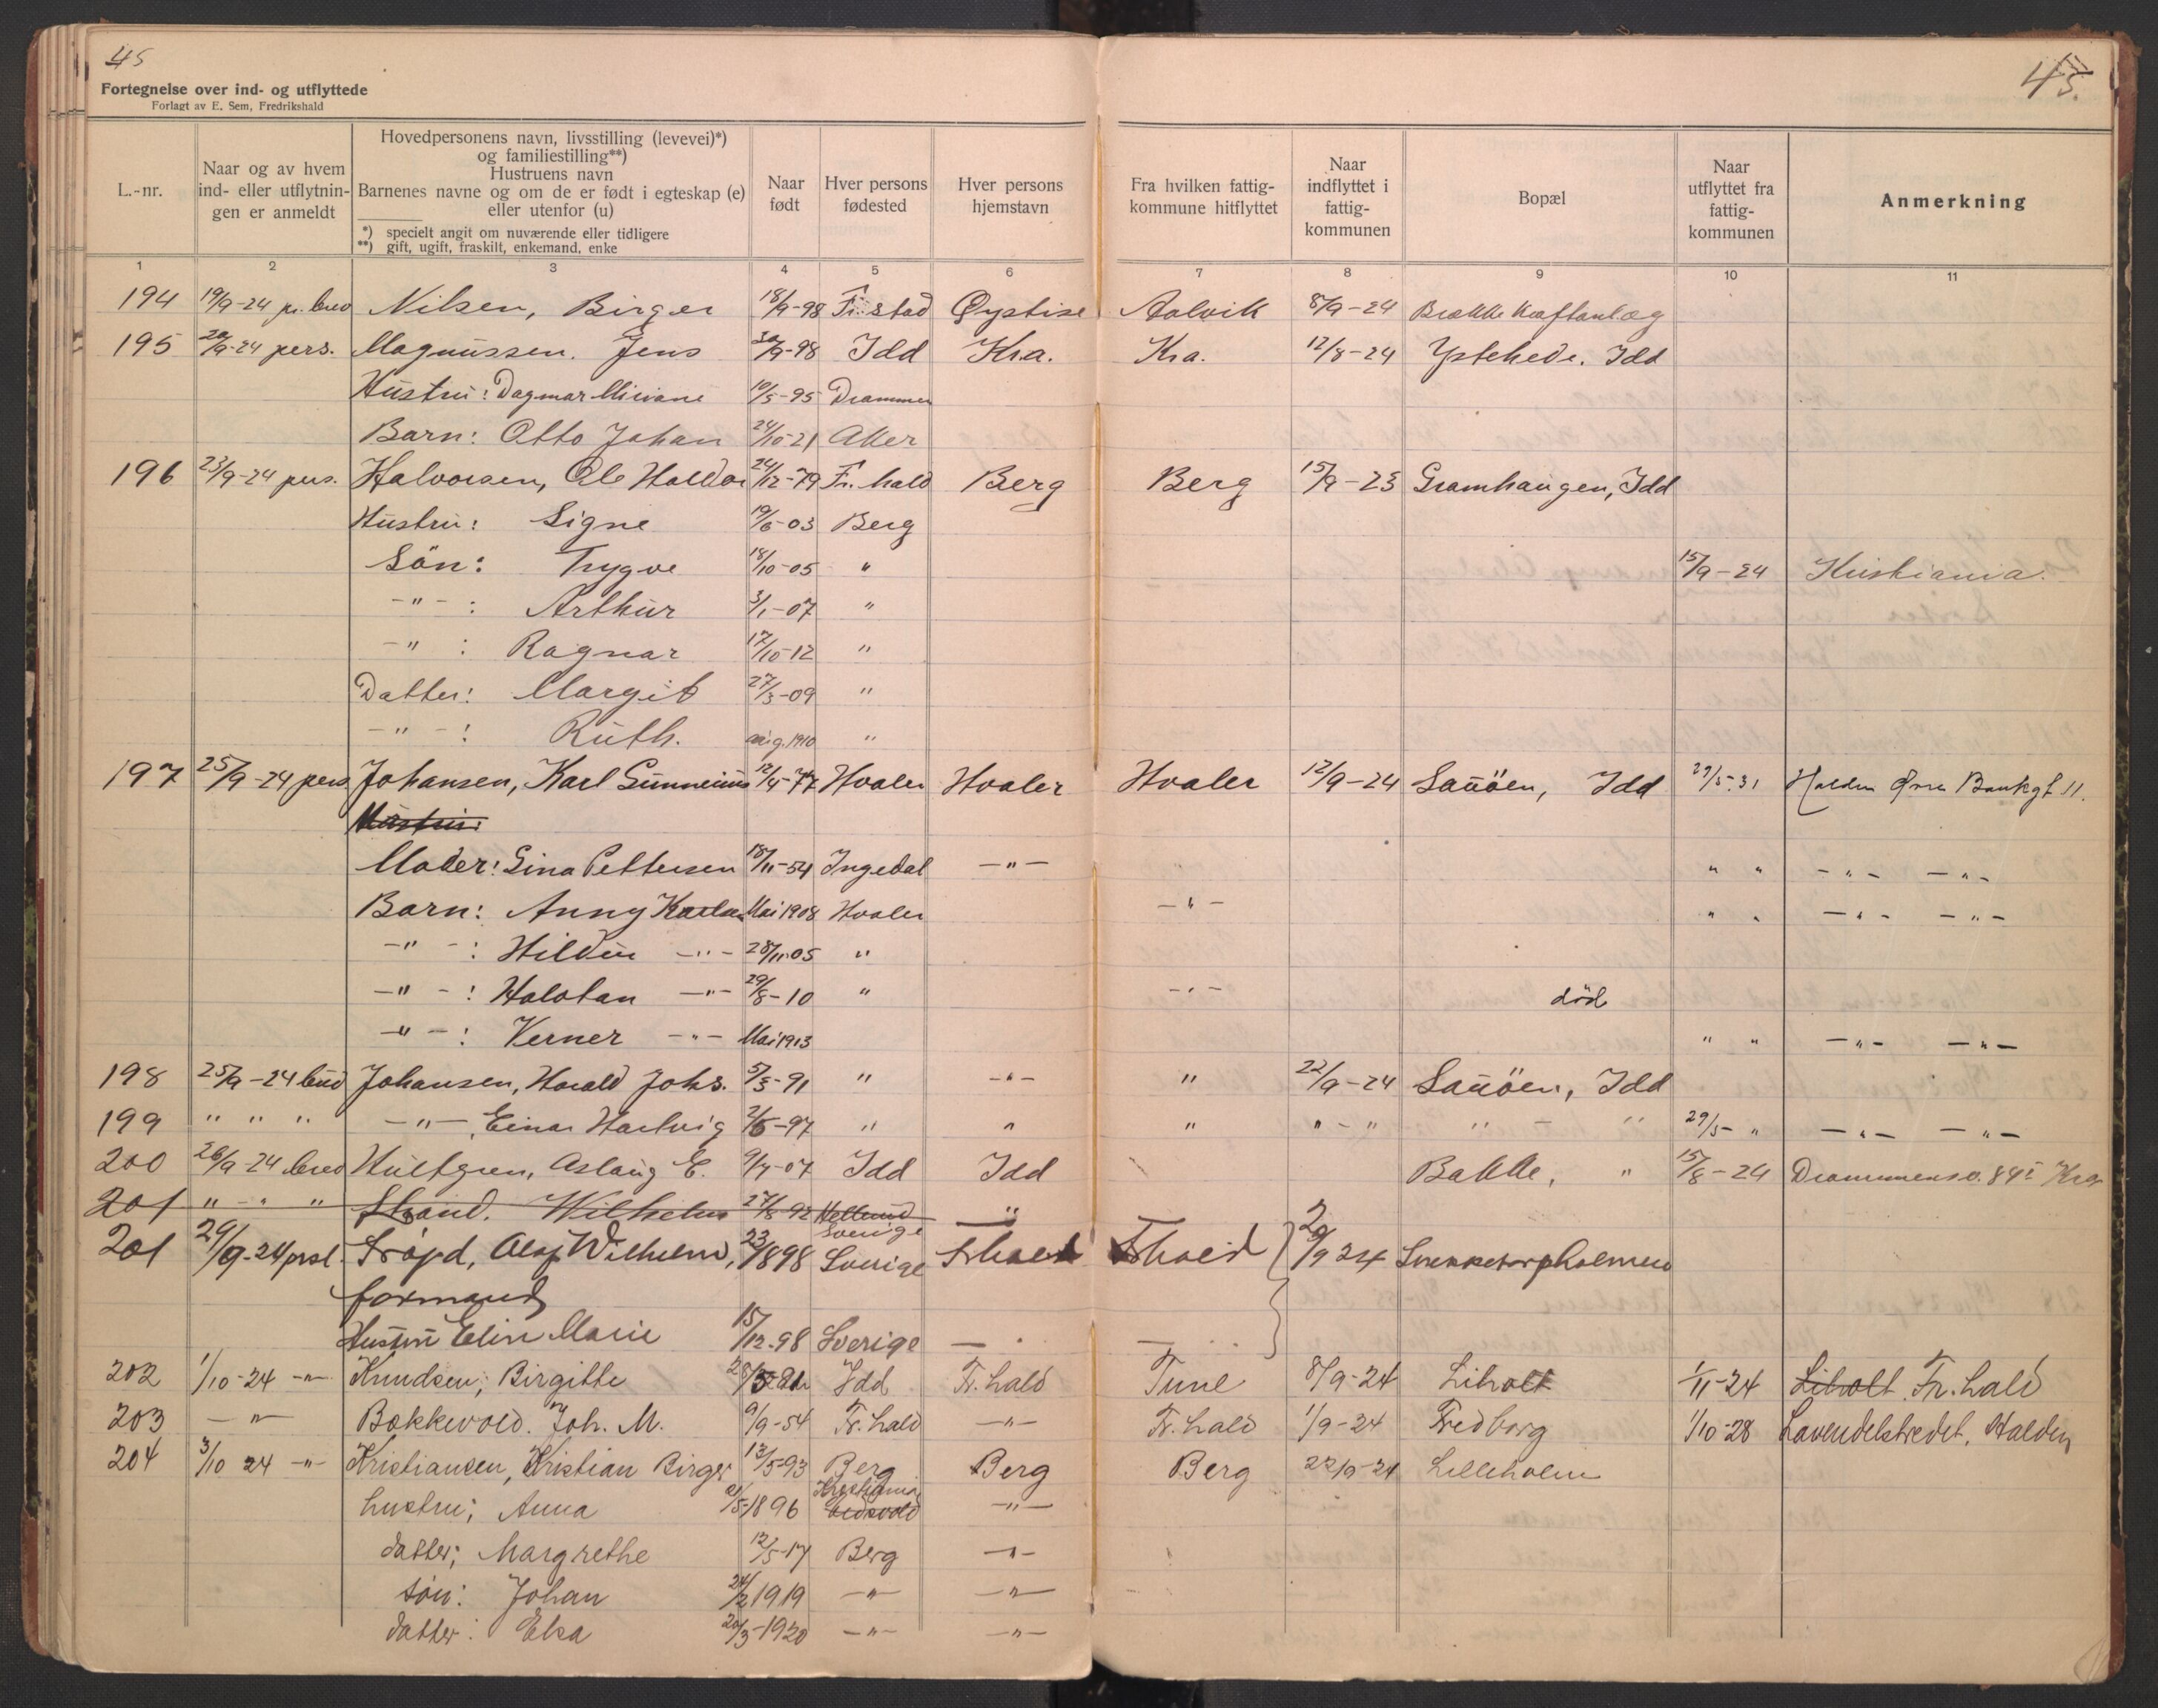 45
45.
Fortegnelse over ind- og utflyttede
Forlagt av E. Sem, Fredrikshald
L.-nr. | Naar og av hvem ind- eller utflytnin-gen er anmeldt | Hovedpersonens navn, livsstilling (levevei)*) og familiestilling**) Hustruens navn Barnenes navne og om de er født i egteskap (e) eller utenfor (u) *) specielt angit om nuværende eller tidligere **) gift, ugift, fraskilt, enkemand, enke | Naar født | Hver persons fødested | Hver persons hjemstavn | Fra hvilken fattig-kommune hitflyttet | Naar indflyttet i fattig-kommunen | Bopæl | Naar utflyttet fra fattig-kommunen | Anmerkning
1 2 3 4 5 6 7 8 9 10 11
194 19/9-24 pr. brev Nilsen, Birger 18/9-98 Fr.stad Aalvik 8/9-24 Brække Kraftanlæg
195 20/9-24 pers. Magnussen. Jens 30/9-98 Idd Kra. Kra. 12/8-24 Ystehede. Idd
Hustru: Dagmar 10/5-95 Drammen
Barn: Otto Johan 24/10-21 Aker
196 23/9-24 pers. Halvorsen, Ole Halldor 24/12-79 Fr. hald Berg Berg 15/9-23 Gramhaugen, Idd
Hustru: Signe 19/6-03 Berg
Sön: Trygve 18/10-05 " 15/9-24 Kristiania.
-"- : Arthur 3/1-07 "
-" : Ragnar 17/10-12 "
Datter: Margit 27/3-09 "
-"- : Ruth. aug. 1910 "
197 25/9-24 pers Johansen, Karl Gunnerius 12/4-77 Hvaler Hvaler Hvaler 12/9-24 Sauöen, Idd 29/5-31 Halden Øvre Bankgt 11.
Hustru:
Moder: Lina Pettersen 18/11-54 Ingedal -"- " " -"- -"-
Barn: Anny Karlsen Mai 1908 Hvaler -"- " " -"- -"-
-"- : Hildur -"- 28/11-05 "
-"- : Halvtan -"- 29/8-10 " -"- död
-"- : Verner -"- Mai 1913 " " -"- -"-
198 25/9-24 bud Johansen, Harald Johs. 5/3-91 " -"- " 22/9-24 Sauöen, Idd
199 " " " -"-, Einar Hartvig 2/6-97 " " " "-" " - " 29/5- " -"- -"-
200 26/9-24 brev Hultgren, Aslaug E. 9/7-07 Idd Idd Bakke, " 15/8-24 Drammensv. 84 I Kra
201 " - " " Strand. Wilhelm 27/8-92 Sverige "
201 29/9-24 prsl. Olof Wilhelm, 23/1898 Sverige Fhald Fhald 29/9 24
formand
Hustru Elin Marie 15/12-98 Sverige - " - "
202 1/10-24 -"- Knudsen; Birgitte Idd Fr. hald Tune 8/9-24 Liholt 1/11-24 Liholt Fr. hald
203 -"- Bakkevold. Joh. M. 9/9-54 Fr. hald -"- Fr. hald 1/9-24 Fredborg 1/10-28 Lavendelstredet, Halden
204 3/10 24 -"- Kristiansen, Kristian Birger 13/5-93 Berg Berg Berg 22/9-24 Lilleholm
hustru; Anna 21/5-1896 Kristiania Eidsvold -"-
datter; Margrethe 12/5-17 Berg -"-
søn: Johan 24/2 1919 -"- -"-
datter: Elsa 20/3-1920 -"- -"-